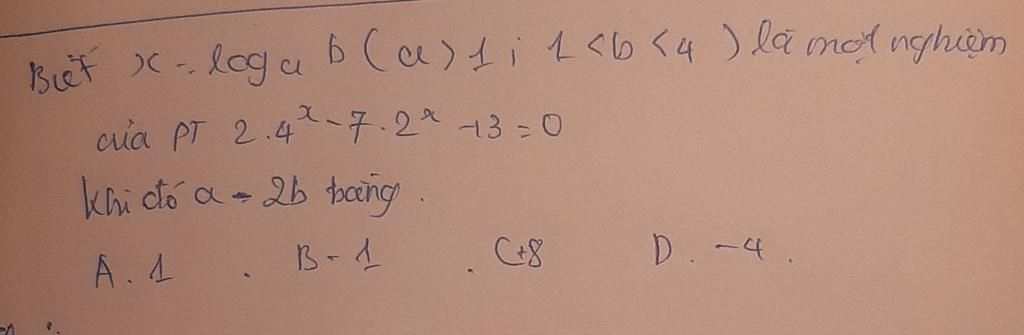 Biết x = log a b (a > 1 ; 1 < b < 4 ) là một nghiệm
của PT 2.4^x - 7.2^x + 3 = 0
khi đó a - 2b bằng.
A. 1 . B - 1 . C +8 D. -4.